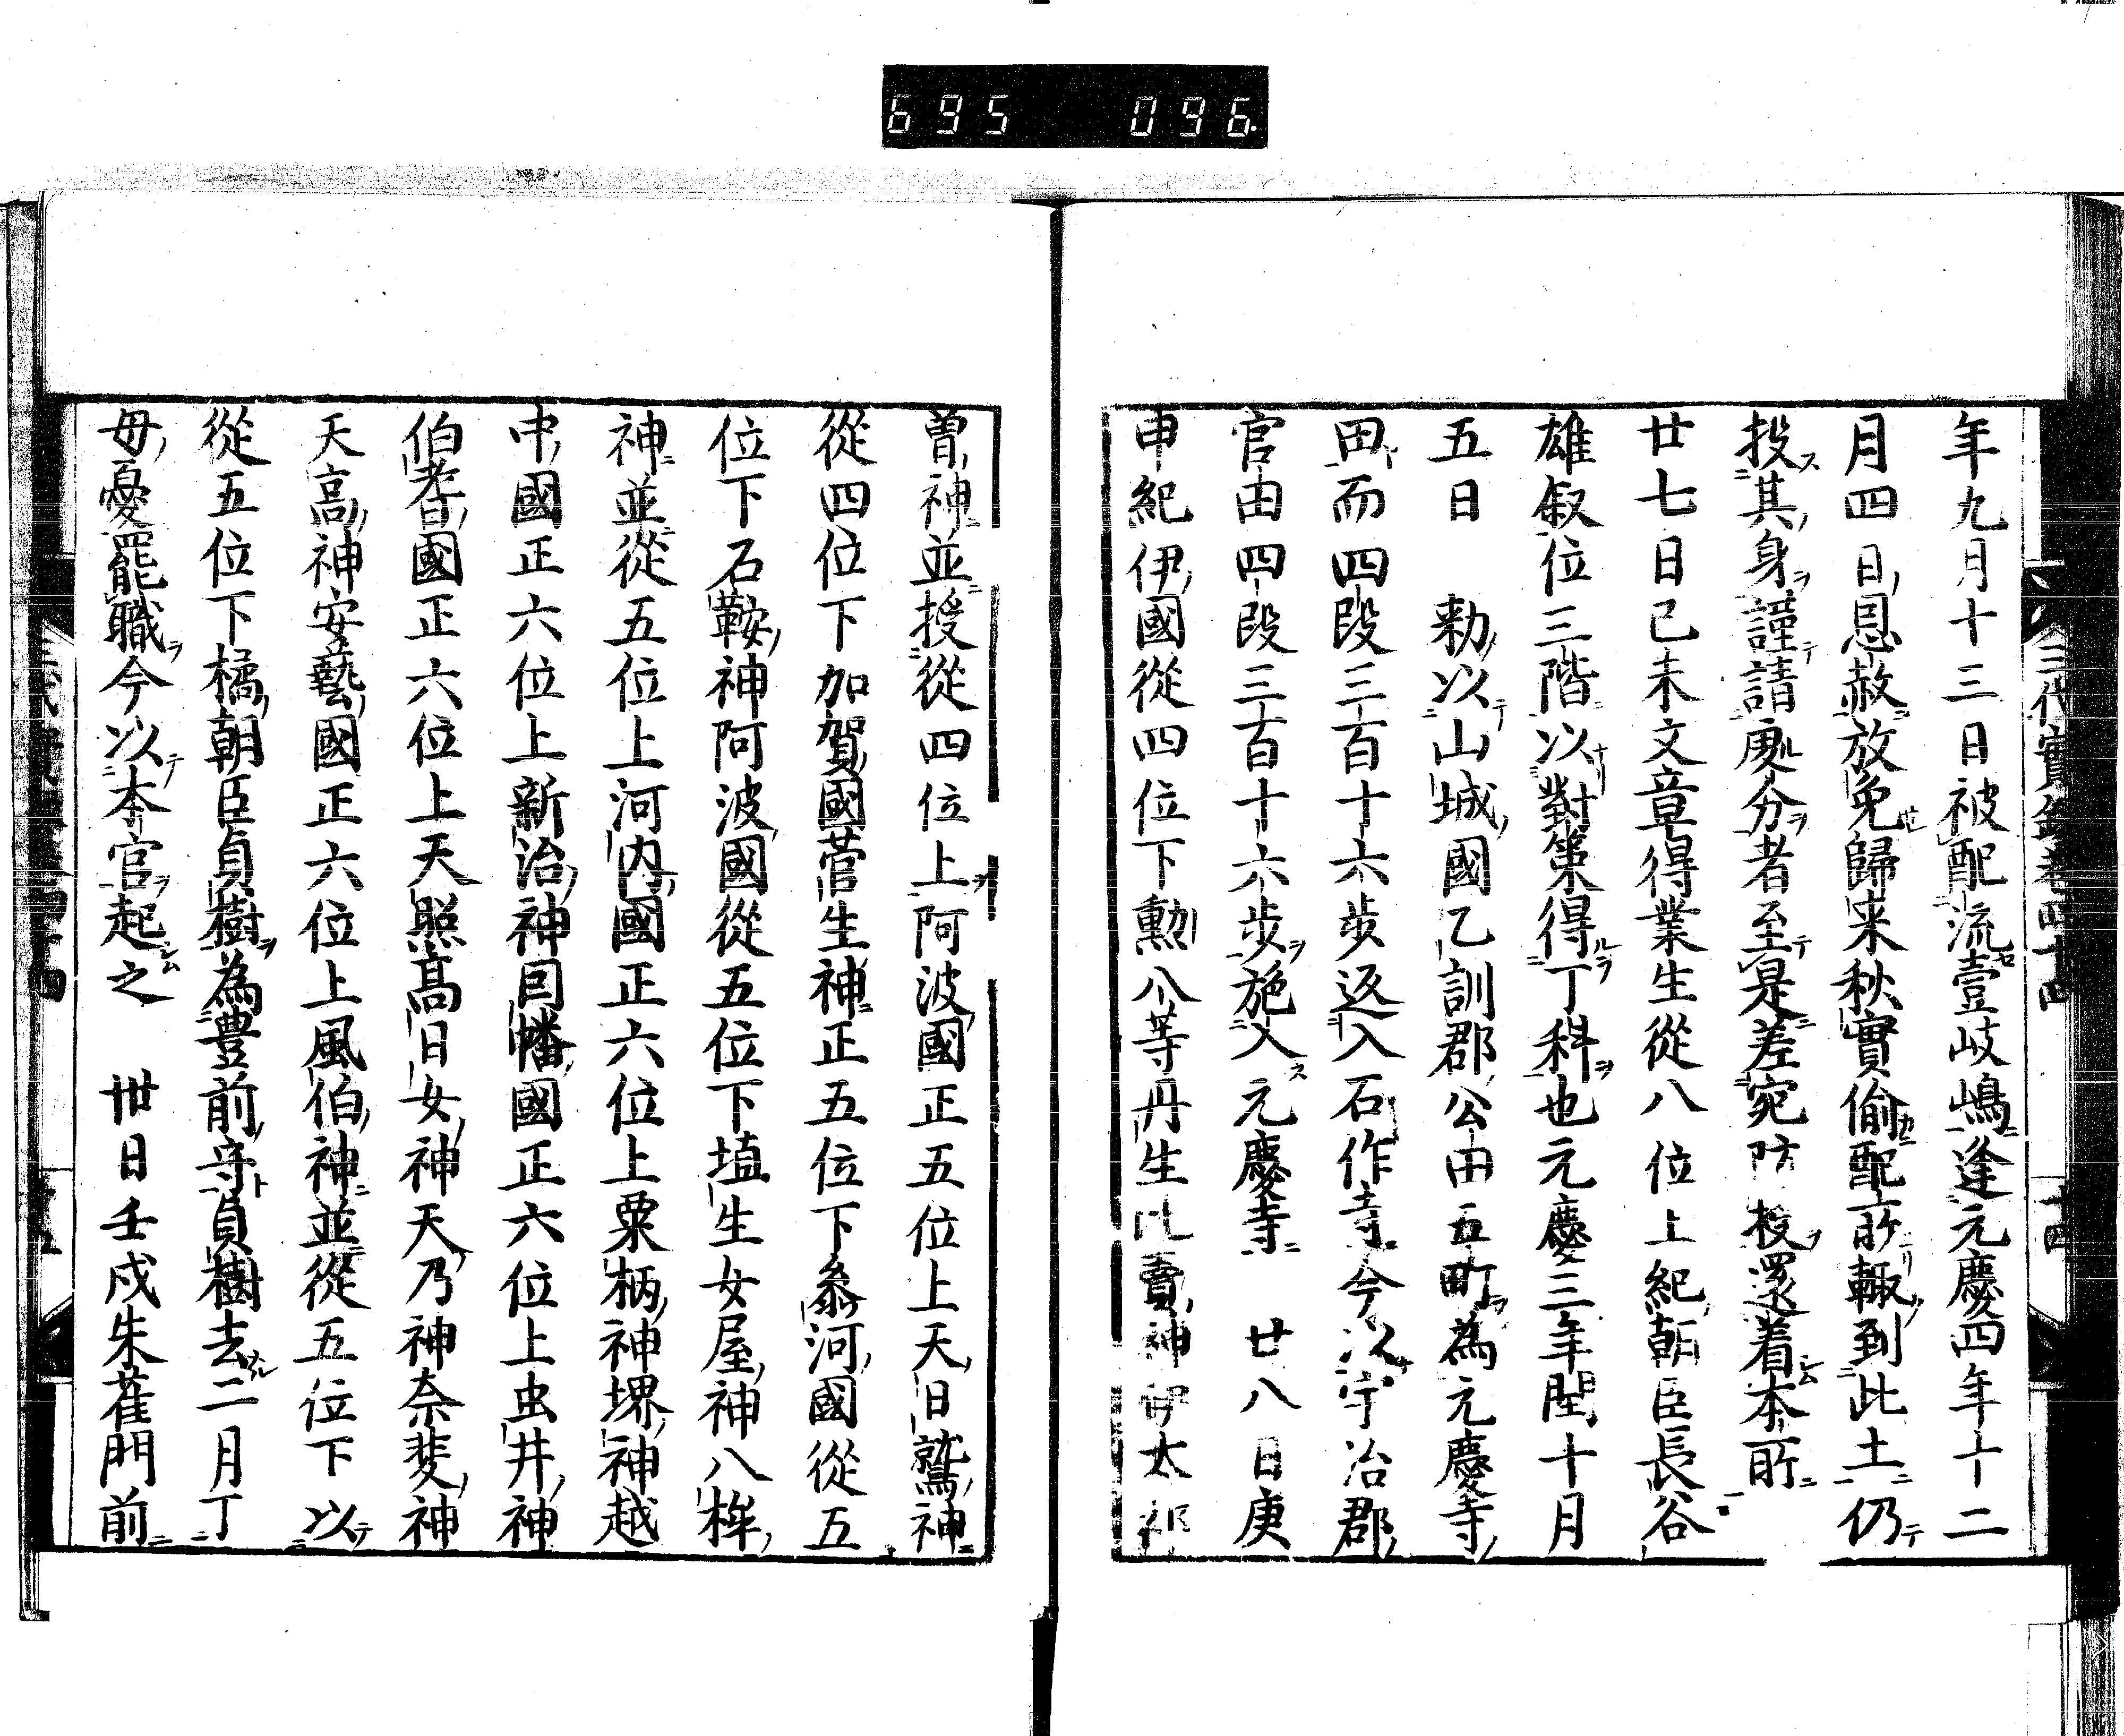 695 096
三代實録卷四十四
十四
年九月十三日被配流壹岐嶋逢元慶四年十二
月四日恩赦放免歸來秋實偷配所輙到此土仍
投其身謹請處分者至是差宛防授還着本所
廿七日己未文章得業生從八位上紀朝臣長谷
雄叙位三階以對策得丁科也元慶三年閏十月
五日 勅以山城國乙訓郡公田五町為元慶寺
田而四段三百十六歩返入石作寺今以宇治郡
官田四段三百十六歩施入元慶寺 廿八日庚
申紀伊國從四位下勲八等丹生比賣神伊太祁
曽神並授從四位上阿波國正五位上天日鷲神
從四位下加賀國菅生神正五位下叅河國從五
位下石鞍神阿波國從五位下埴生女屋神八桙
神並從五位上河内國正六位上粟柄神堺神越
中國正六位上新治神囙幡國正六位上虫井神
伯耆國正六位上天照髙日女神天乃神奈斐神
天高神安藝國正六位上風伯神並從五位下以
從五位下橘朝臣貞樹為豊前守貞樹去二月丁
毋憂罷職今以本官起之 卅日壬戌朱雀門前